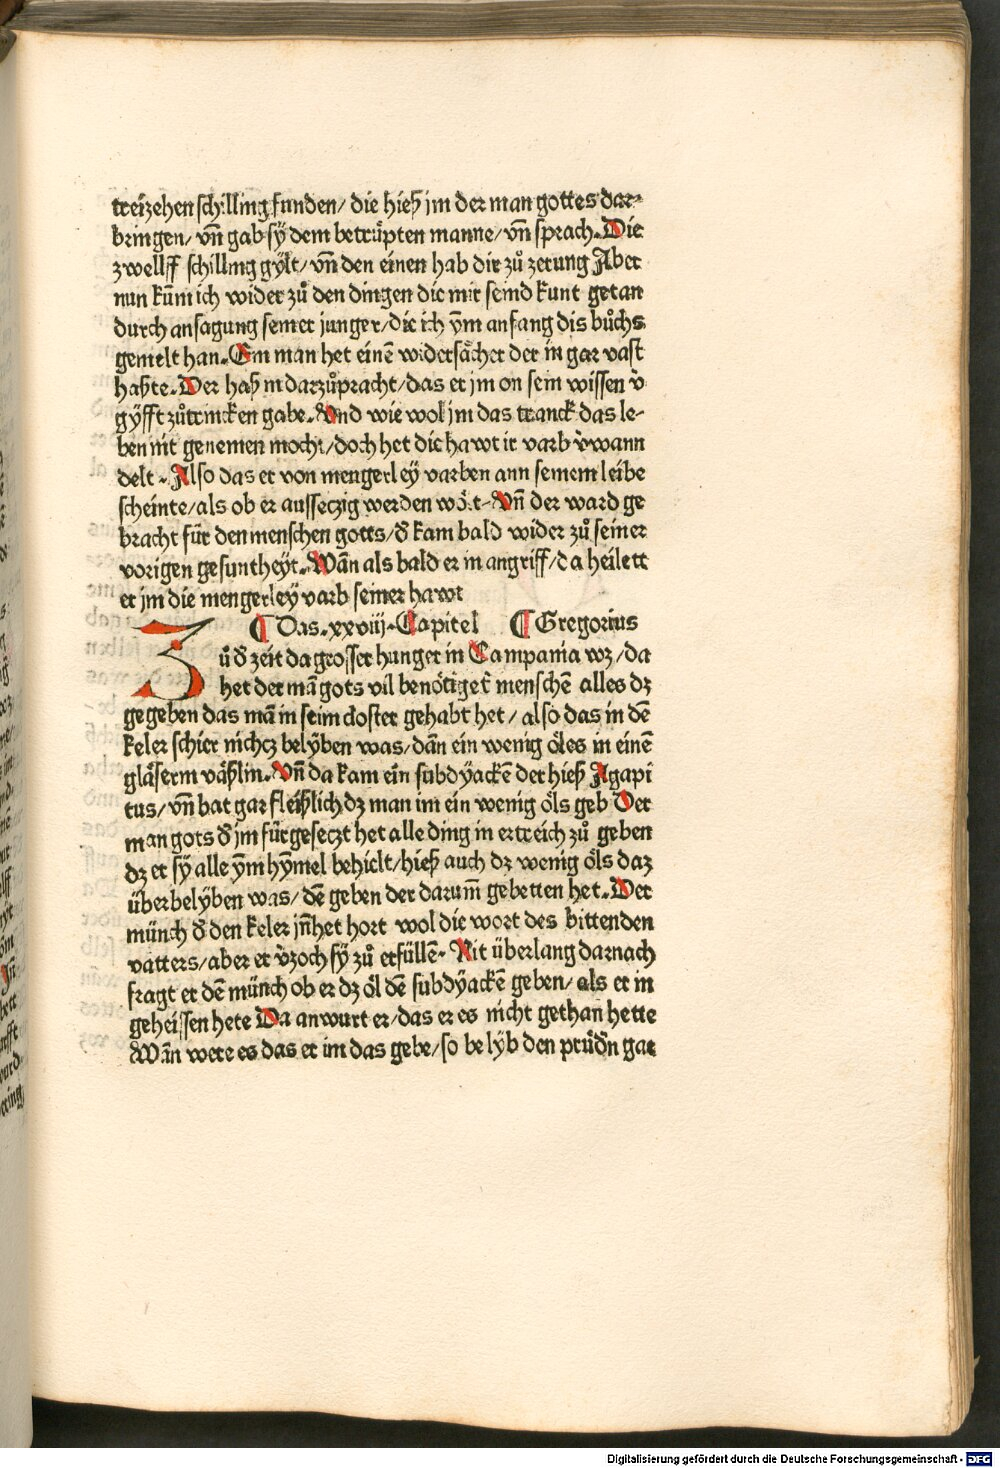 treizehen schilling funden/ die hieß jm der man gottes dar-
bringen/ vn̄ gab sÿ dem betrüpten manne/ vn̄ sprach. Die
zwellff schilling gÿlt/ vn̄ den einen hab dir zů zerung Aber
nun kūm ich wider zů den dingen die mir seind kunt getan
durch ansagung seiner junger/ die ich ȳm anfang dis bůchs
gemelt han. Ein man het einē widersåcher der in gar vast
haßte. Der haß in darzůpracht/ das er jm on sein wissen v̄
gÿfft zůtrincken gabe. Vnd wie wol jm das tranck das le-
ben nit genemen mocht/ doch het die hawt ir varb v̄wann
delt. Also das er von mengerleÿ varben ann seinem leibe
scheinte/ als ob er ausseczig werden wöꝛt. Vn̄ der ward ge
bracht für den menschen gotts/ d̄ kam bald wider zů seiner
vorigen gesuntheÿt. Wān als bald er in angriff/ da heilett
er jm die mengerleÿ varb seiner hawt
¶ Das. xxviij. Capitel ¶ Gregorius
Zů d̄ zeit da grosser hunger in Campania wz/ da
het der mā gots vil benötiget̄ menschē alles dz
gegeben das mā in seim closter gehabt het/ also das in dē
keler schier nichcz belÿben was/ dān ein wenig öles in einē
glåserm våßlin. Vn̄ da kam ein subdÿackē der hieß Agapi
tus/ vn̄ bat gar fleißlich dz man im ein wenig öls geb Der
man gots d̄ jm fürgeseczt het alle ding in ertreich zů geben
dz er sÿ alle ȳm hȳmel behielt/ hieß auch dz wenig öls daz
überbelÿben was/ dē geben der darum̄ gebetten het. Der
münch d̄ den keler jn̄het hort wol die wort des bittenden
vatters/ aber er v̄zoch sÿ zů erfüllē. Nit überlang darnach
fragt er dē münch ob er dz öl dē subdÿackē geben/ als er in
geheissen hete Da anwurt er/ das er es nicht gethan hette
Wān were es das er im das gebe/ so belÿb den prüd̄n gar
Digitalisierung gefördert durch die Deutsche Forschungsgemeinschaft - DFG